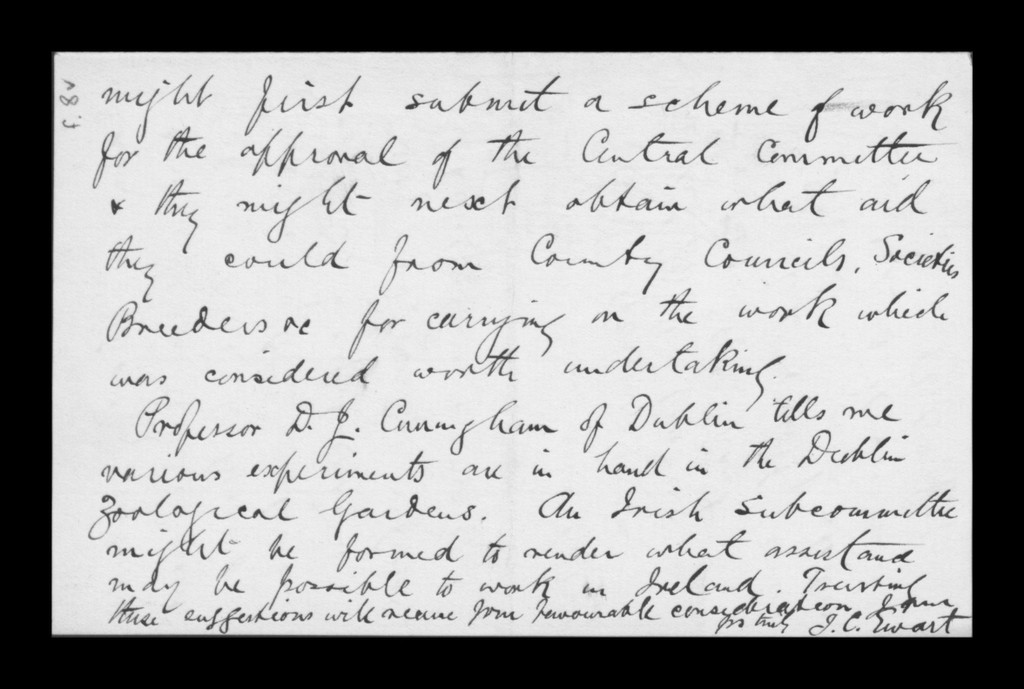 f. 8v
might first submit a scheme of work
for the approval of the Central Committee
& they might next obtain what aid
they could from County Councils, Societies
Breeders &c for carrying on the work which
was considered worth undertaking.
Professor D. J. Cunningham of Dublin tells me
various experiments are in hand in the Dublin
Zoological Gardens. An Irish Subcommittee
might be formed to render what assistance
may be possible to work in Ireland. Trusting
these suggestions will receive your favourable consideration I am
yrs truly J. C. Ewart